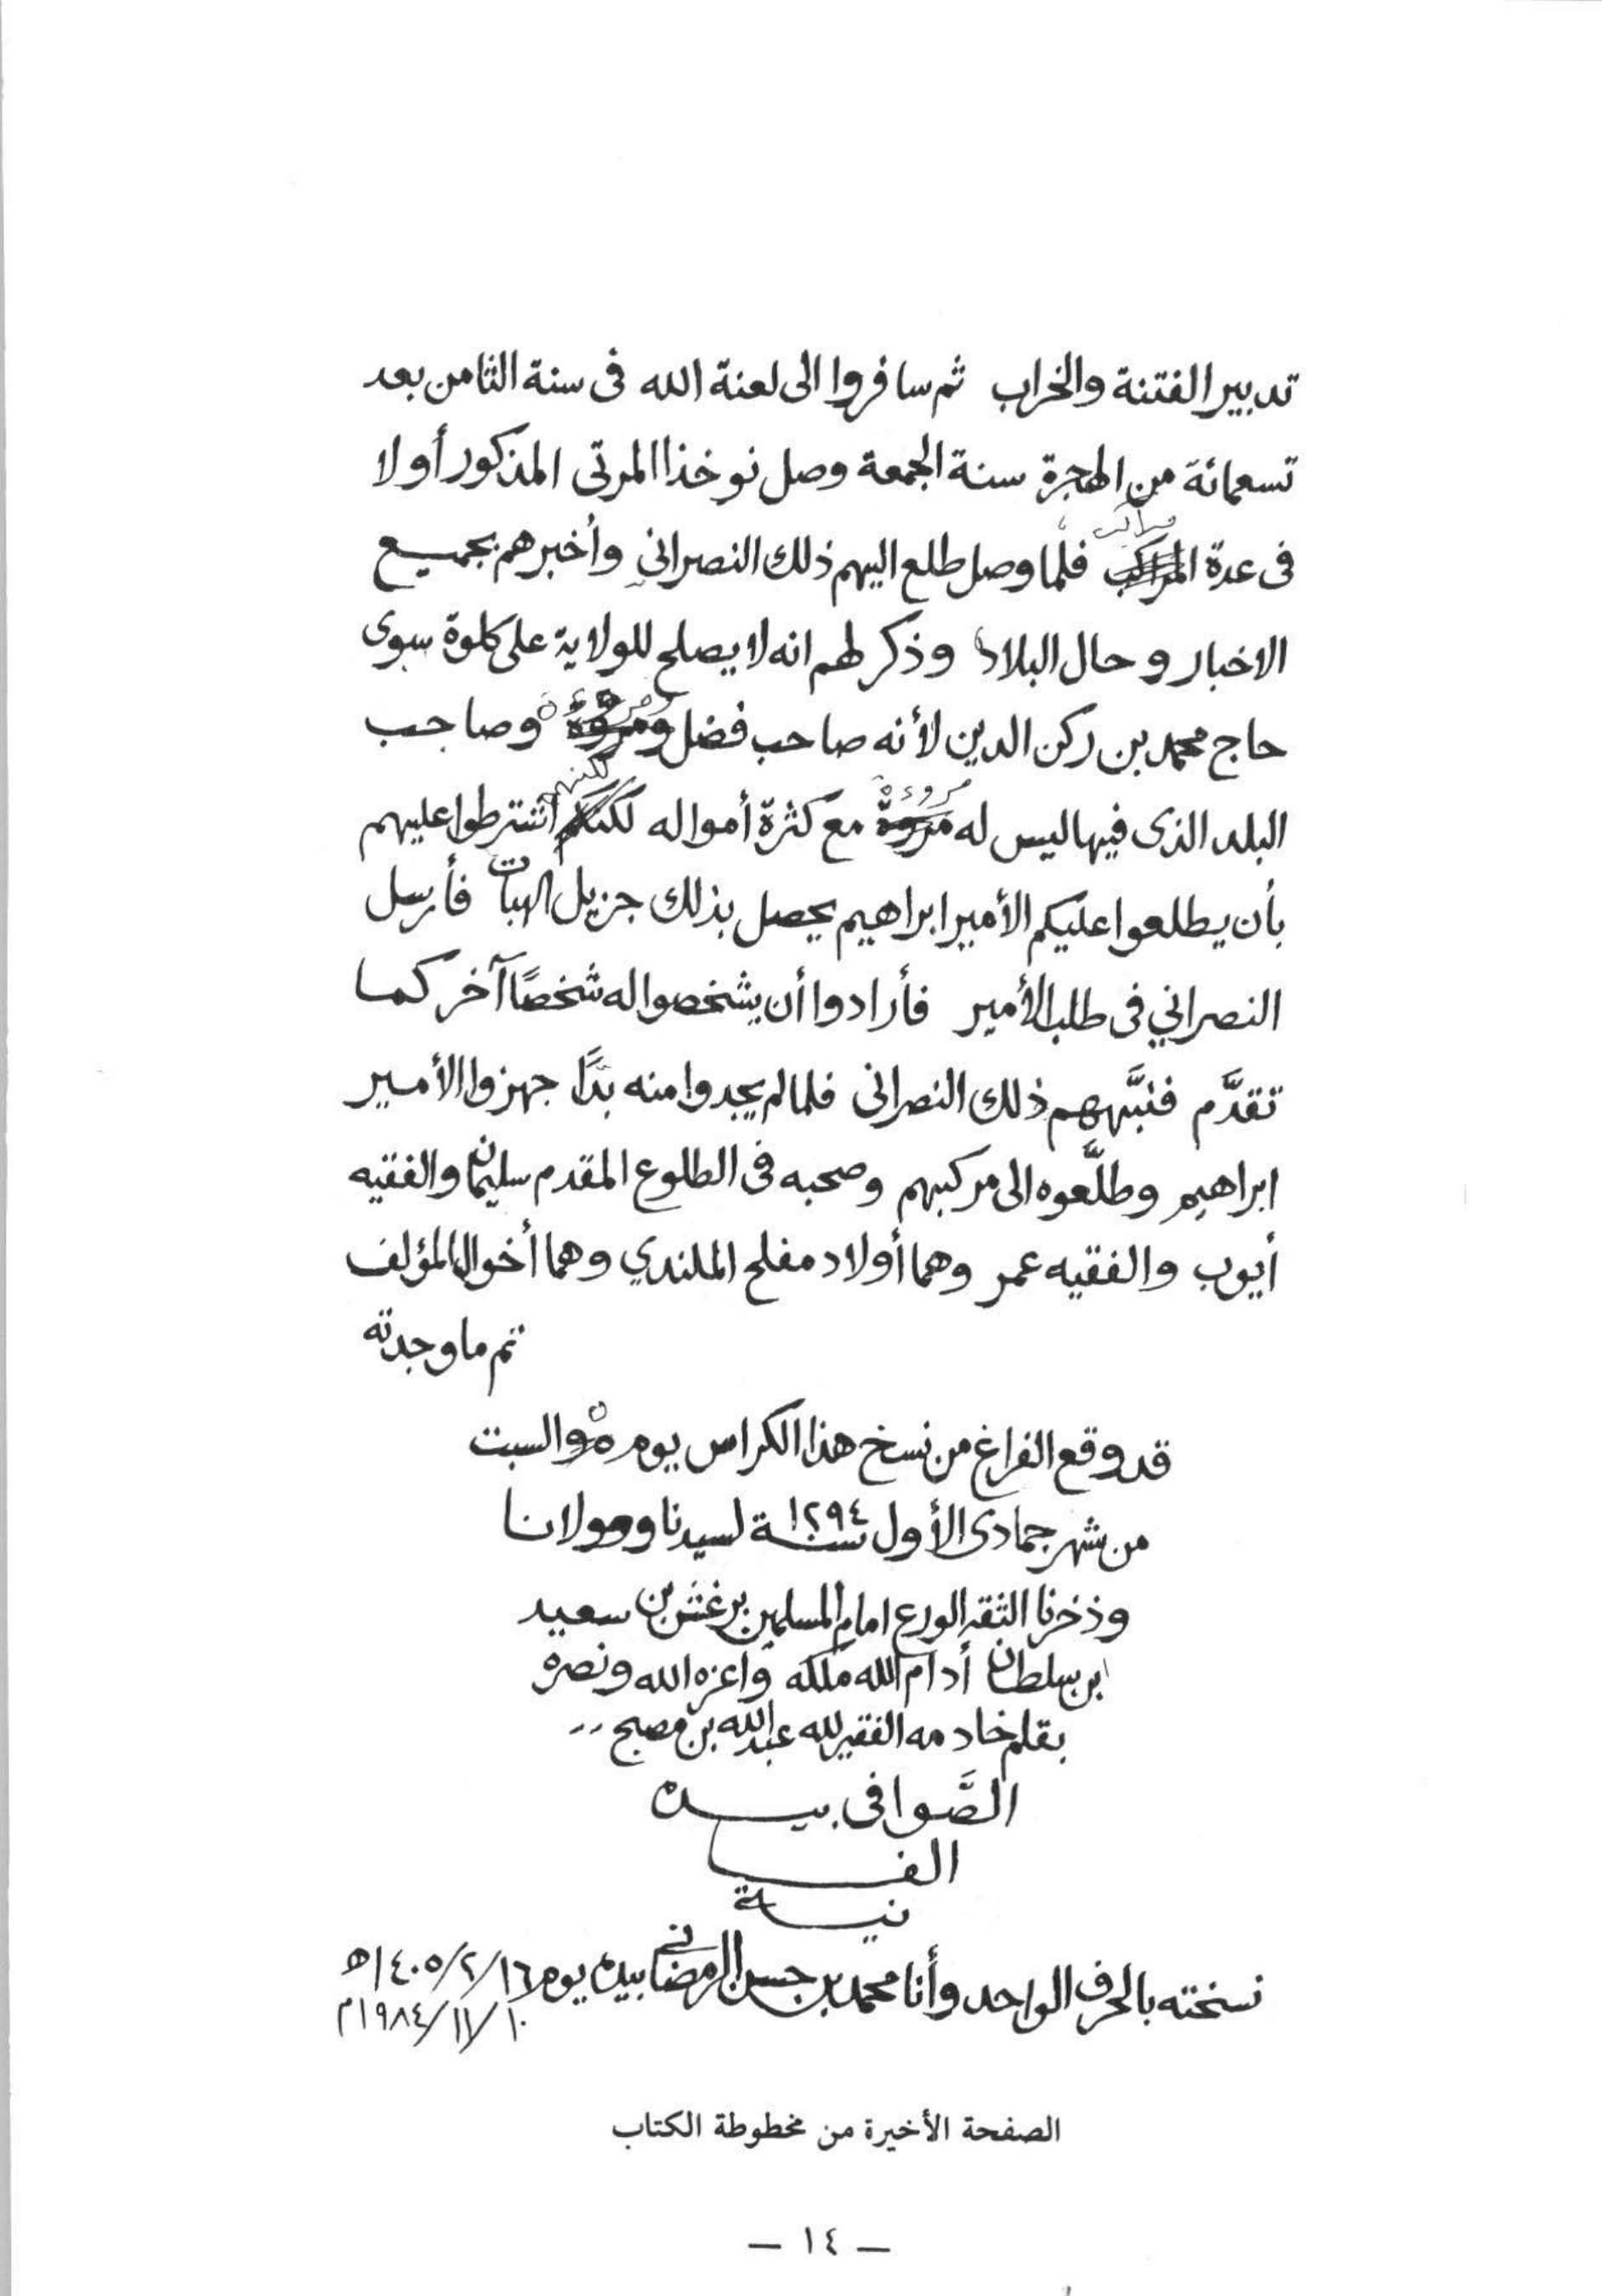 تدبير الفتنة والخراب ثم سافروا الى لعنة الله فى سنة الثامن بعد
تسعمائة من الهجرة سنة الجمعة وصل نوخذا المرتى المذكور أولا
فى عدة المراكب مراكب فلما وصل طلع اليهم ذلك النصرانى وأخبرهم بجميع
الاخبار وحال البلاد وذكر لهم انه لا يصلح للولاية على كلوة سوى
حاج محمد بن ركن الدين لأنه صاحب فضل ومروّة وصاحب
البلد الذى فيها ليس له مروءة مع كثرة أمواله لكنهم اشترطوا عليهم
بأن يطلعوا عليكم الأمير ابراهيم يحصل بذلك جزيل الهبات فأرسل
النصراني فى طلب الأمير فأرادوا أن يشخصوا له شخصًا آخر كما
تقدَّم فنبَّههم ذلك النصرانى فلما لم يجدوا منه بدًّا جهزوا الأمير
ابراهيم وطلَّعوه الى مركبهم وصحبه فى الطلوع المقدم سليمان والفقيه
أيوب والفقيه عمر وهما أولاد مفلح الملندي وهما أخوال المؤلف
تم ما وجدته
قد وقع الفراغ من نسخ هذا الكراس يوم ٥ والسبت
من شهر جمادى الأول سنة ١٢٩٤ لسيدنا ومولانا
وذخرنا الثقه الورع امام المسلمين برغش بن سعيد
ابن سلطان أدام الله ملكه واعزه الله ونصره
بقلم خادمه الفقير لله عبدالله بن مصبح
الصَّوافى بيده
الفا
نية
نسخته بالحرف الواحد وأنا محمد بن حسن الرمضاني بيده يوم ١٤٠٥/٢/١٦ه
١٩٨٤/١١/١٠م
الصفحة الأخيرة من مخطوطة الكتاب
— ١٤ —